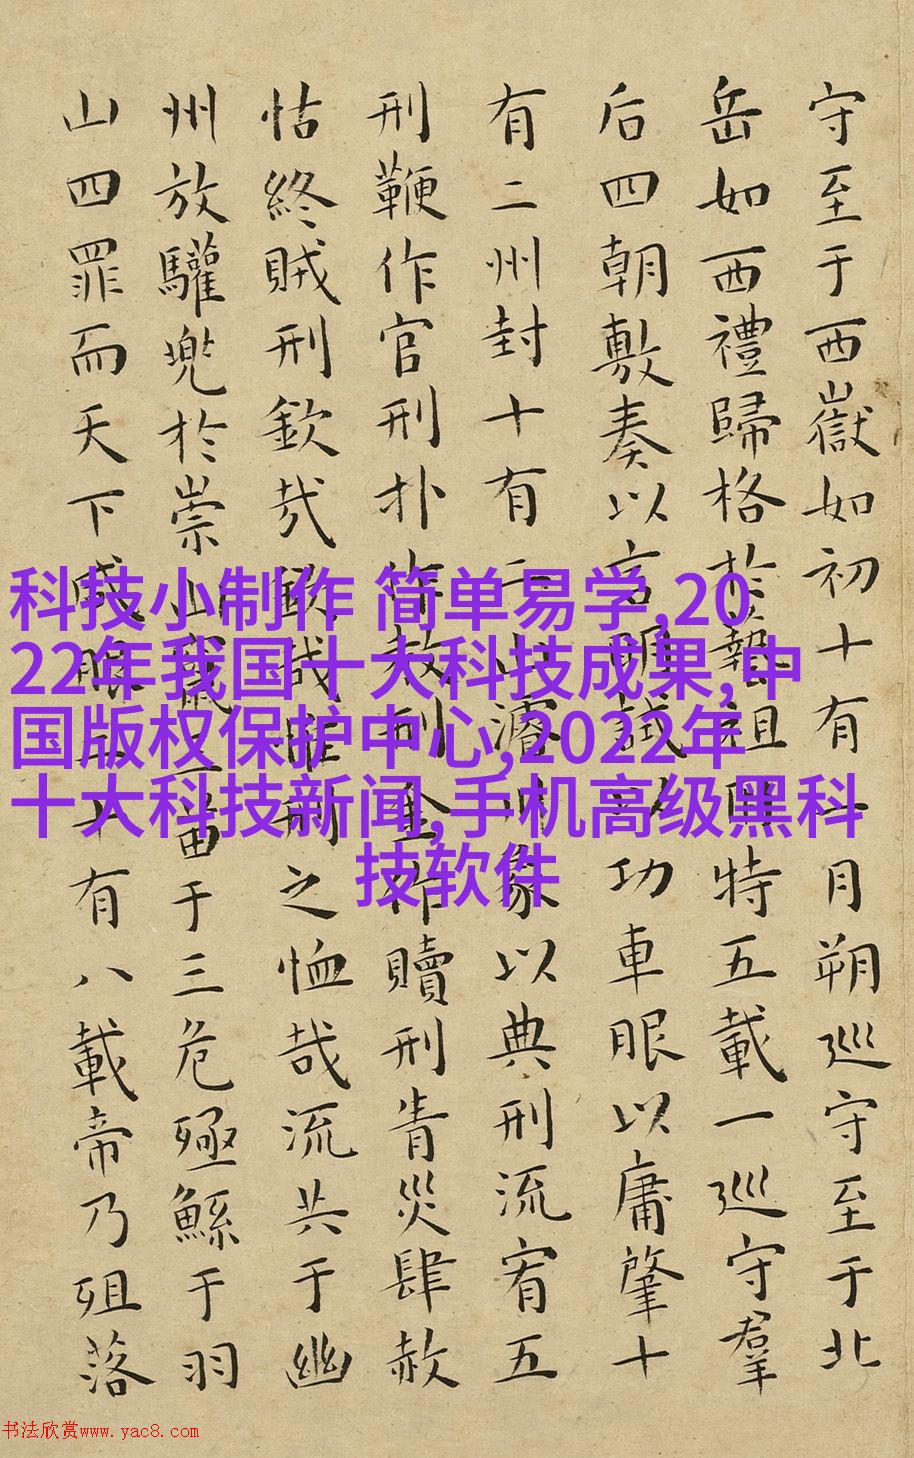 守至于西嶽如初十有一月朔巡守至于北
岳如西禮歸格於藝祖用特五載一巡守羣
后四朝敷奏以言明試以功車眼以庸肇十
有二州封十有二山濬川象以典刑流宥五
刑鞭作官刑扑作教刑金作贖刑眚災肆赦
怙終賊刑欽哉欽哉惟刑之恤哉流共于幽
州放驩兜於崇山竄三苗于三危殛鯀于羽
山四罪而天下咸服二十有八載帝乃殂落
科技小制作 简单易学,20
22年我国十大科技成果,中
国版权保护中心,2022年
十大科技新闻,手机高级黑科
技软件
书法欣赏www.yac8.com